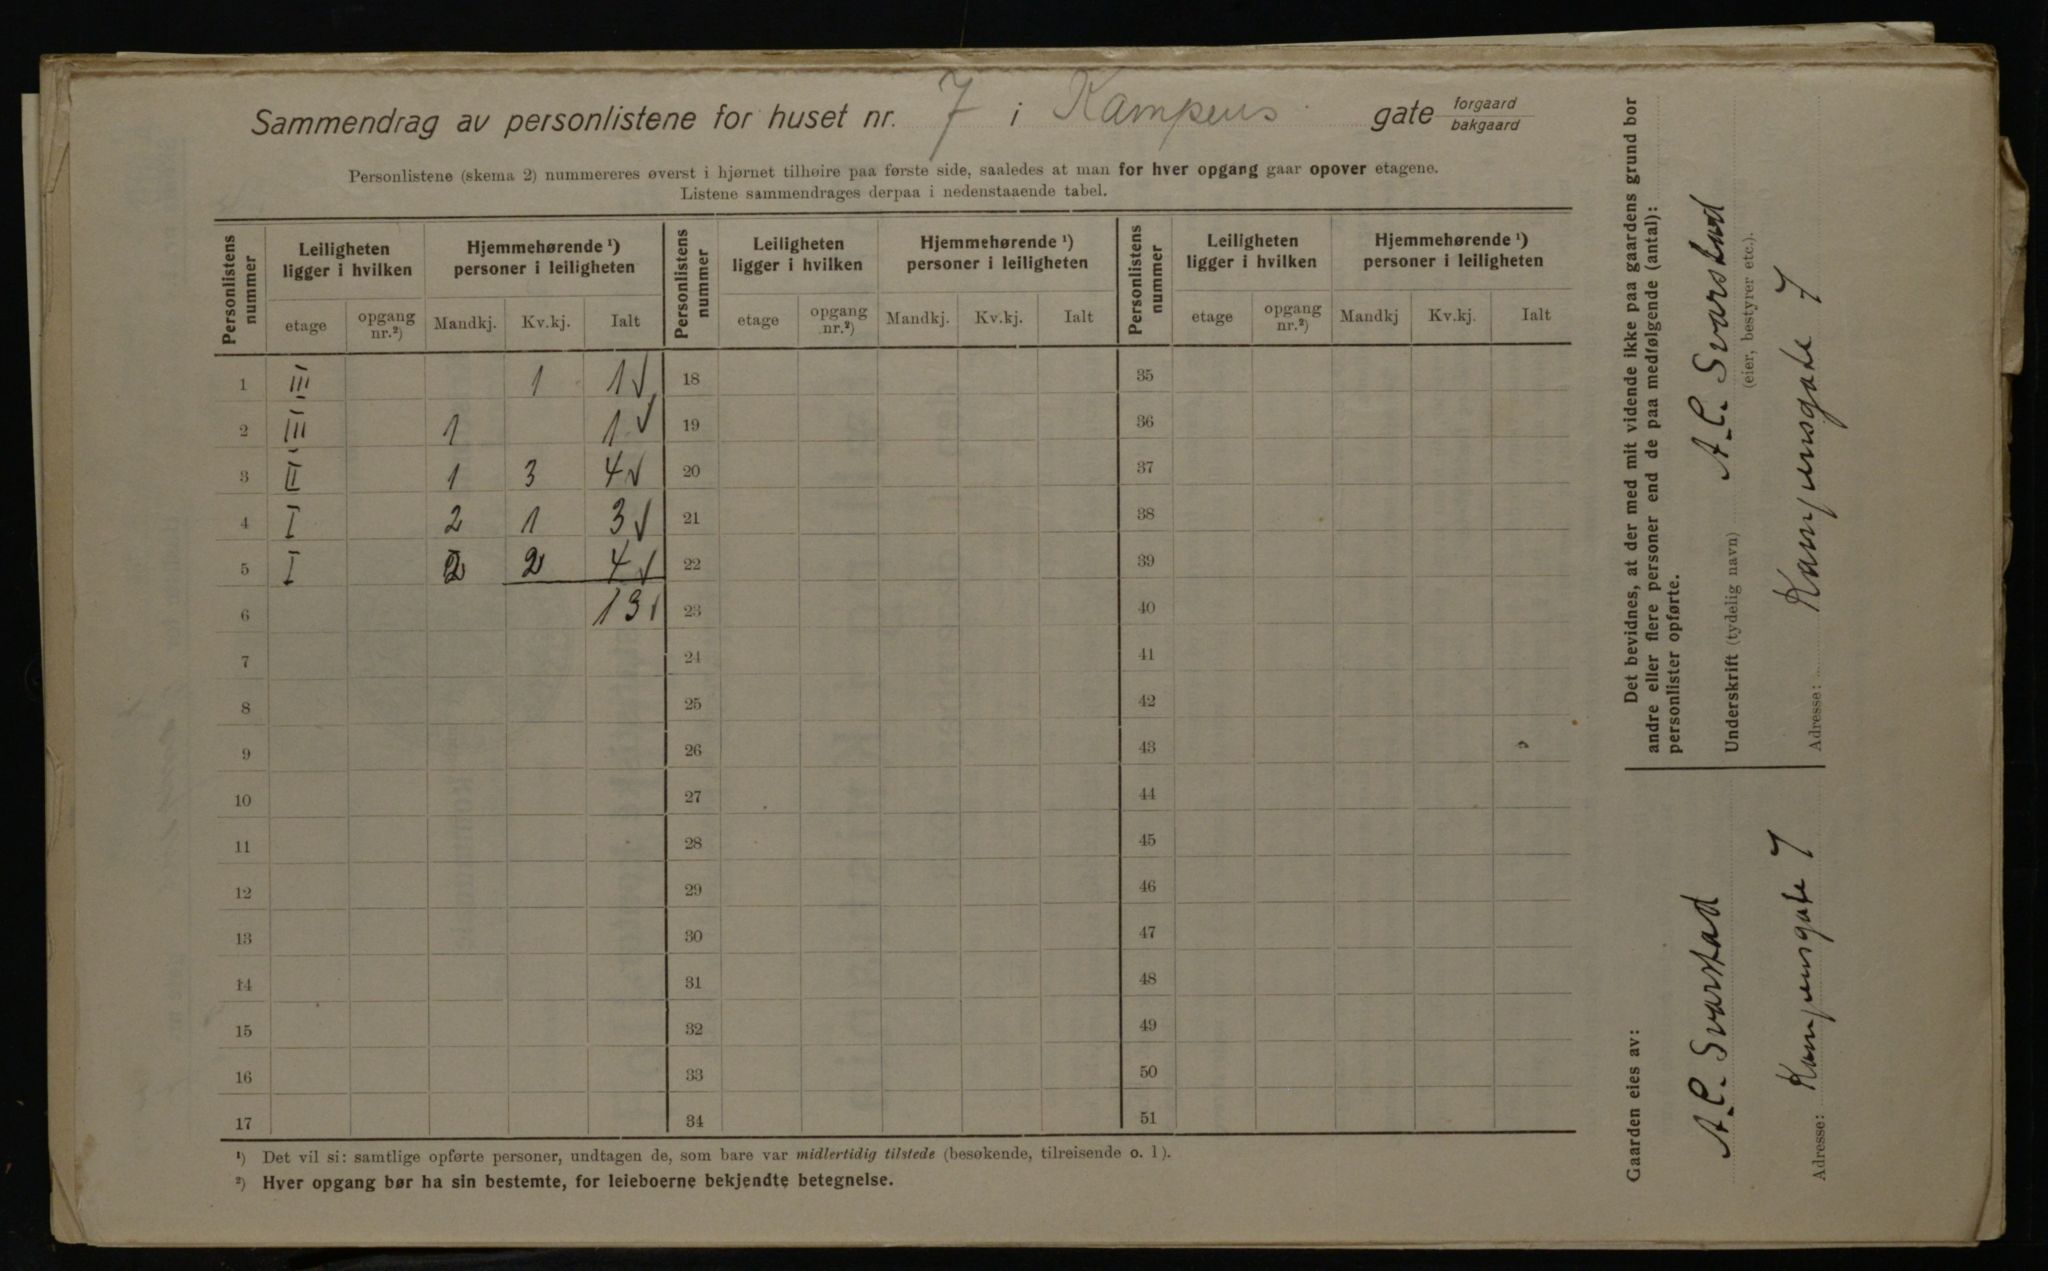 Sammendrag av personlistene for huset nr. 7 i Kampens gate forgaard bakgaard
Personlistene (skema 2) nummereres øverst i hjørnet tilhøire paa første side, saaledes at man for hver opgang gaar opover etagene.
Listene sammendrages derpaa i nedenstaaende tabel.
Personlistens nummer | Leiligheten ligger i hvilken | Hjemmehørende ¹) personer i leiligheten | Personlistens nummer | Leiligheten ligger i hvilken | Hjemmehørende ¹) personer i leiligheten | Personlistens nummer | Leiligheten ligger i hvilken | Hjemmehørende ¹) personer i leiligheten
etage | opgang nr.²) | Mandkj. | Kv.kj. | Ialt | etage | opgang nr.²) | Mandkj. | Kv.kj. | Ialt | etage | opgang nr.²) | Mandkj | Kv.kj. | Ialt
1 III 1 1 √ 18 35
2 III 1 1 √ 19 36
3 II 1 3 4 √ 20 37
4 I 2 1 3 √ 21 38
5 I 2 2 4 √ 22 39
6 13 √ 23 40
7 24 41
8 25 42
9 26 43
10 27 44
11 28 45
12 29 46
13 30 47
14 31 48
15 32 49
16 33 50
17 34 51
¹) Det vil si: samtlige opførte personer, undtagen de, som bare var midlertidig tilstede (besøkende, tilreisende o. l).
²) Hver opgang bør ha sin bestemte, for leieboerne bekjendte betegnelse.
Det bevidnes, at der med mit vidende ikke paa gaardens grund bor
andre eller flere personer end de paa medfølgende (antal):
personlister opførte.
Underskrift (tydelig navn) A. C. Svarstad
(eier, bestyrer etc.).
Adresse: Kampensgate 7
Gaarden eies av:
A. C. Svarstad
Adresse: Kampensgate 7